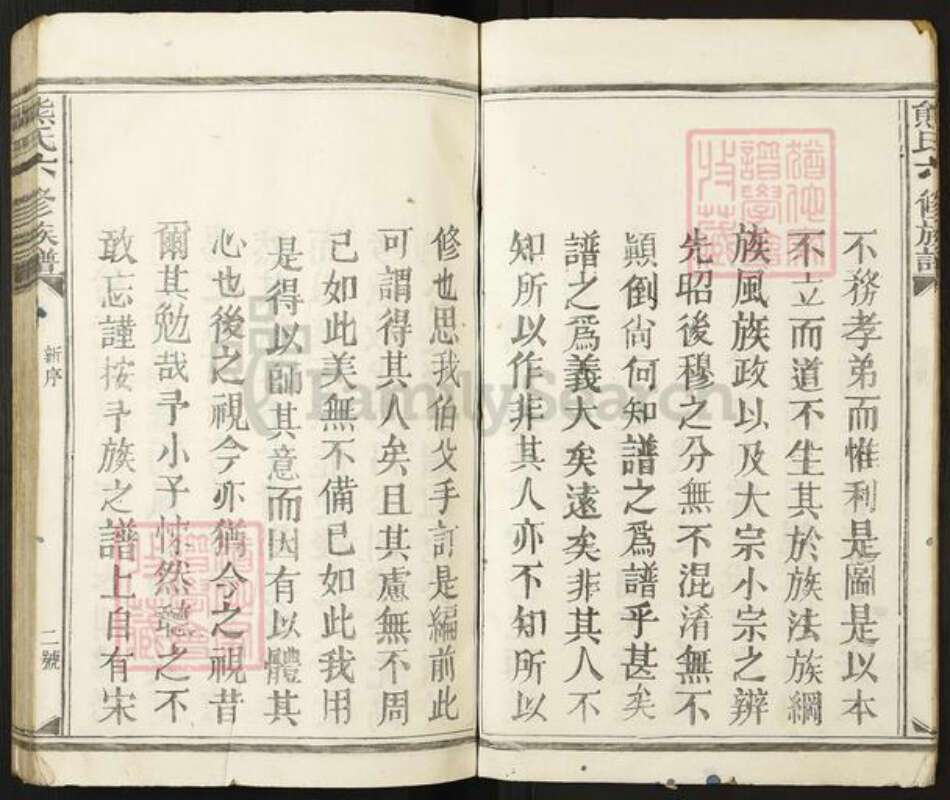 熊氏六修族譜
不務孝弟而惟利是圖是以本
不立而道不生其於族法族綱
族風族政以及大宗小宗之辨
先昭後穆之分無不混淆無不
顛倒尙何知譜之爲譜乎甚矣
譜之爲義大矣遠矣非其人不
知所以作非其人亦不知所以
修也思我伯父手訂是編前此
可謂得其人矣且其慮無不周
已如此美無不備已如此我用
是得以師其意而因有以體其
心也後之視今亦猶今之視昔
爾其勉哉予小子悚然聽之不
敢忘謹按予族之譜上自有宋
熊氏六修族譜
新序
二號
FamilySearch